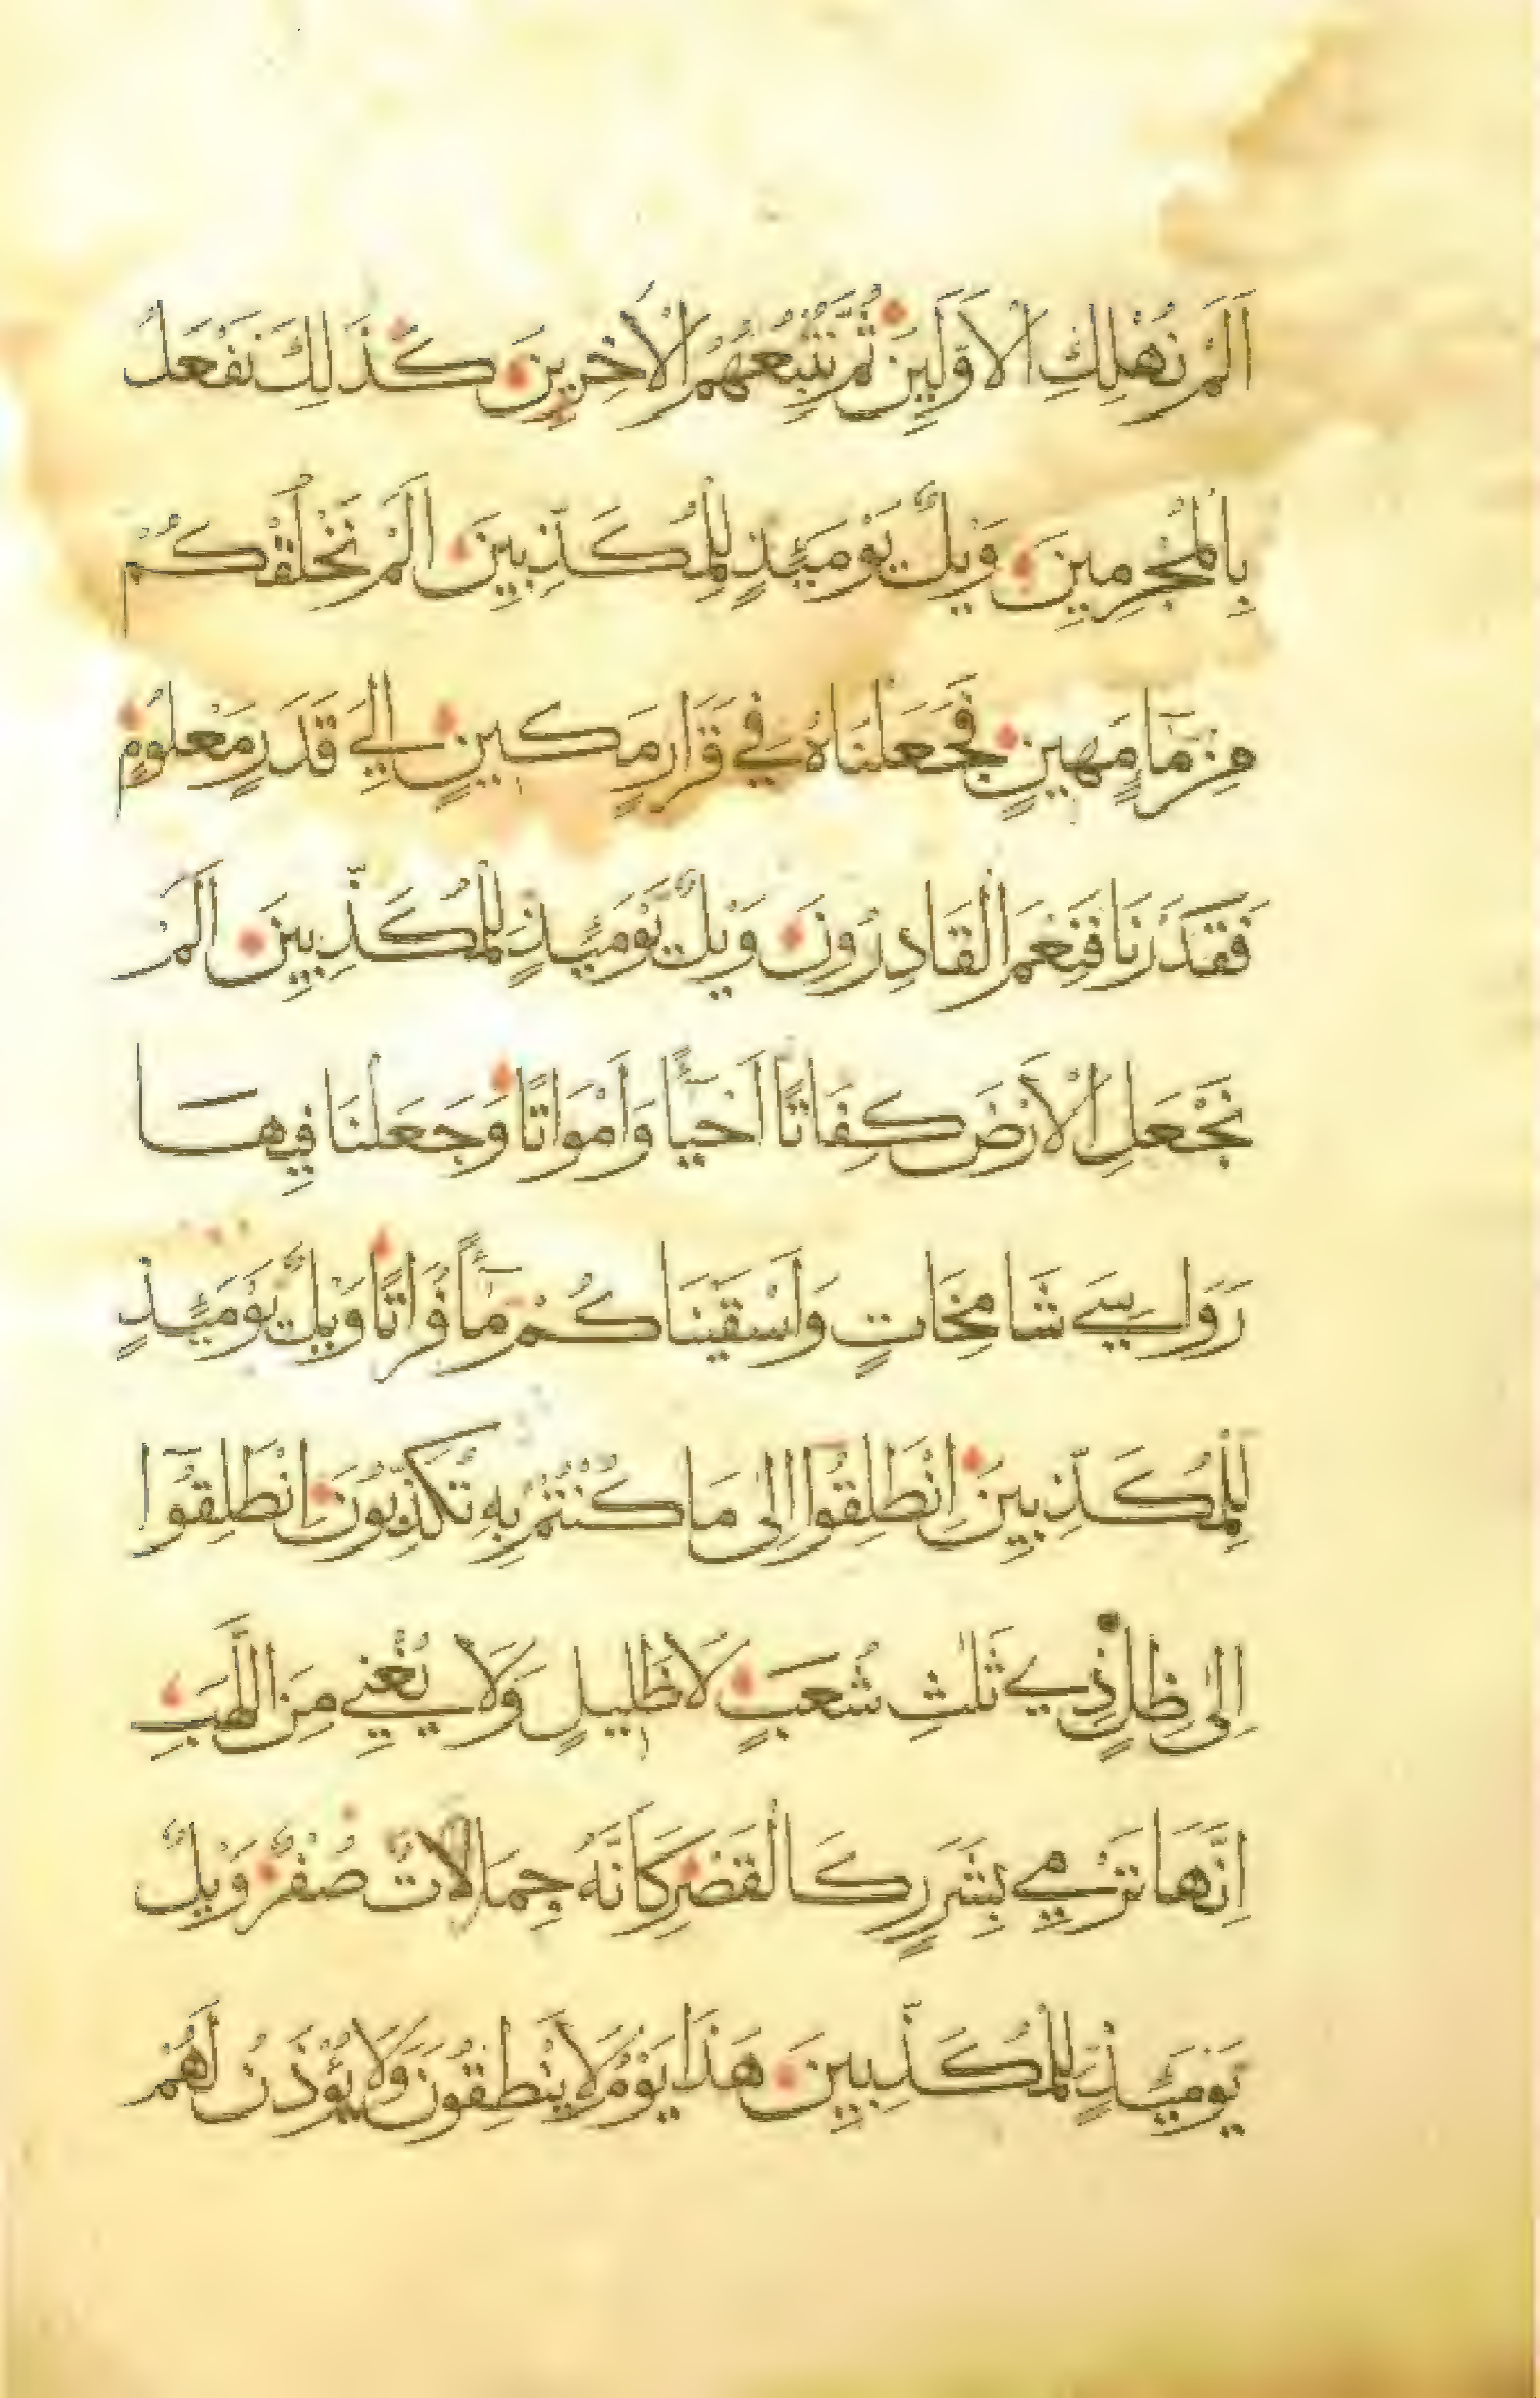 اَلَمْ نُهْلِكِ الْاَوَّلِينَ ثُمَّ نُتْبِعُهُمُ الْاٰخِرِينَ كَذٰلِكَ نَفْعَلُ
بِالْمُجْرِمِينَ وَيْلٌ يَوْمَئِذٍ لِلْمُكَذِّبِينَ اَلَمْ نَخْلُقْكُمْ
مِنْ مَآءٍ مَهِينٍ فَجَعَلْنَاهُ فِي قَرَارٍ مَكِينٍ اِلَي قَدَرٍ مَعْلُومٍ
فَقَدَرْنَا فَنِعْمَ الْقَادِرُونَ وَيْلٌ يَوْمَئِذٍ لِلْمُكَذِّبِينَ اَلَمْ
نَجْعَلِ الْاَرْضَ كِفَاتًا اَحْيَآءً وَاَمْوَاتًا وَجَعَلْنَا فِيهَا
رَوَاسِيَ شَامِخَاتٍ وَاَسْقَيْنَاكُمْ مَآءً فُرَاتًا وَيْلٌ يَوْمَئِذٍ
لِلْمُكَذِّبِينَ اِنْطَلِقُوا اِلٰى مَا كُنْتُمْ بِهِ تُكَذِّبُونَ اِنْطَلِقُوٓا
اِلٰى ظِلٍّ ذِي ثَلٰثِ شُعَبٍ لَا ظَلِيلٍ وَلَا يُغْنِي مِنَ اللَّهَبِ
اِنَّهَا تَرْمِي بِشَرَرٍ كَالْقَصْرِ كَاَنَّهُ جِمَالَاتٌ صُفْرٌ وَيْلٌ
يَوْمَئِذٍ لِلْمُكَذِّبِينَ هَذَا يَوْمُ لَا يَنْطِقُونَ وَلَا يُؤْذَنُ لَهُمْ